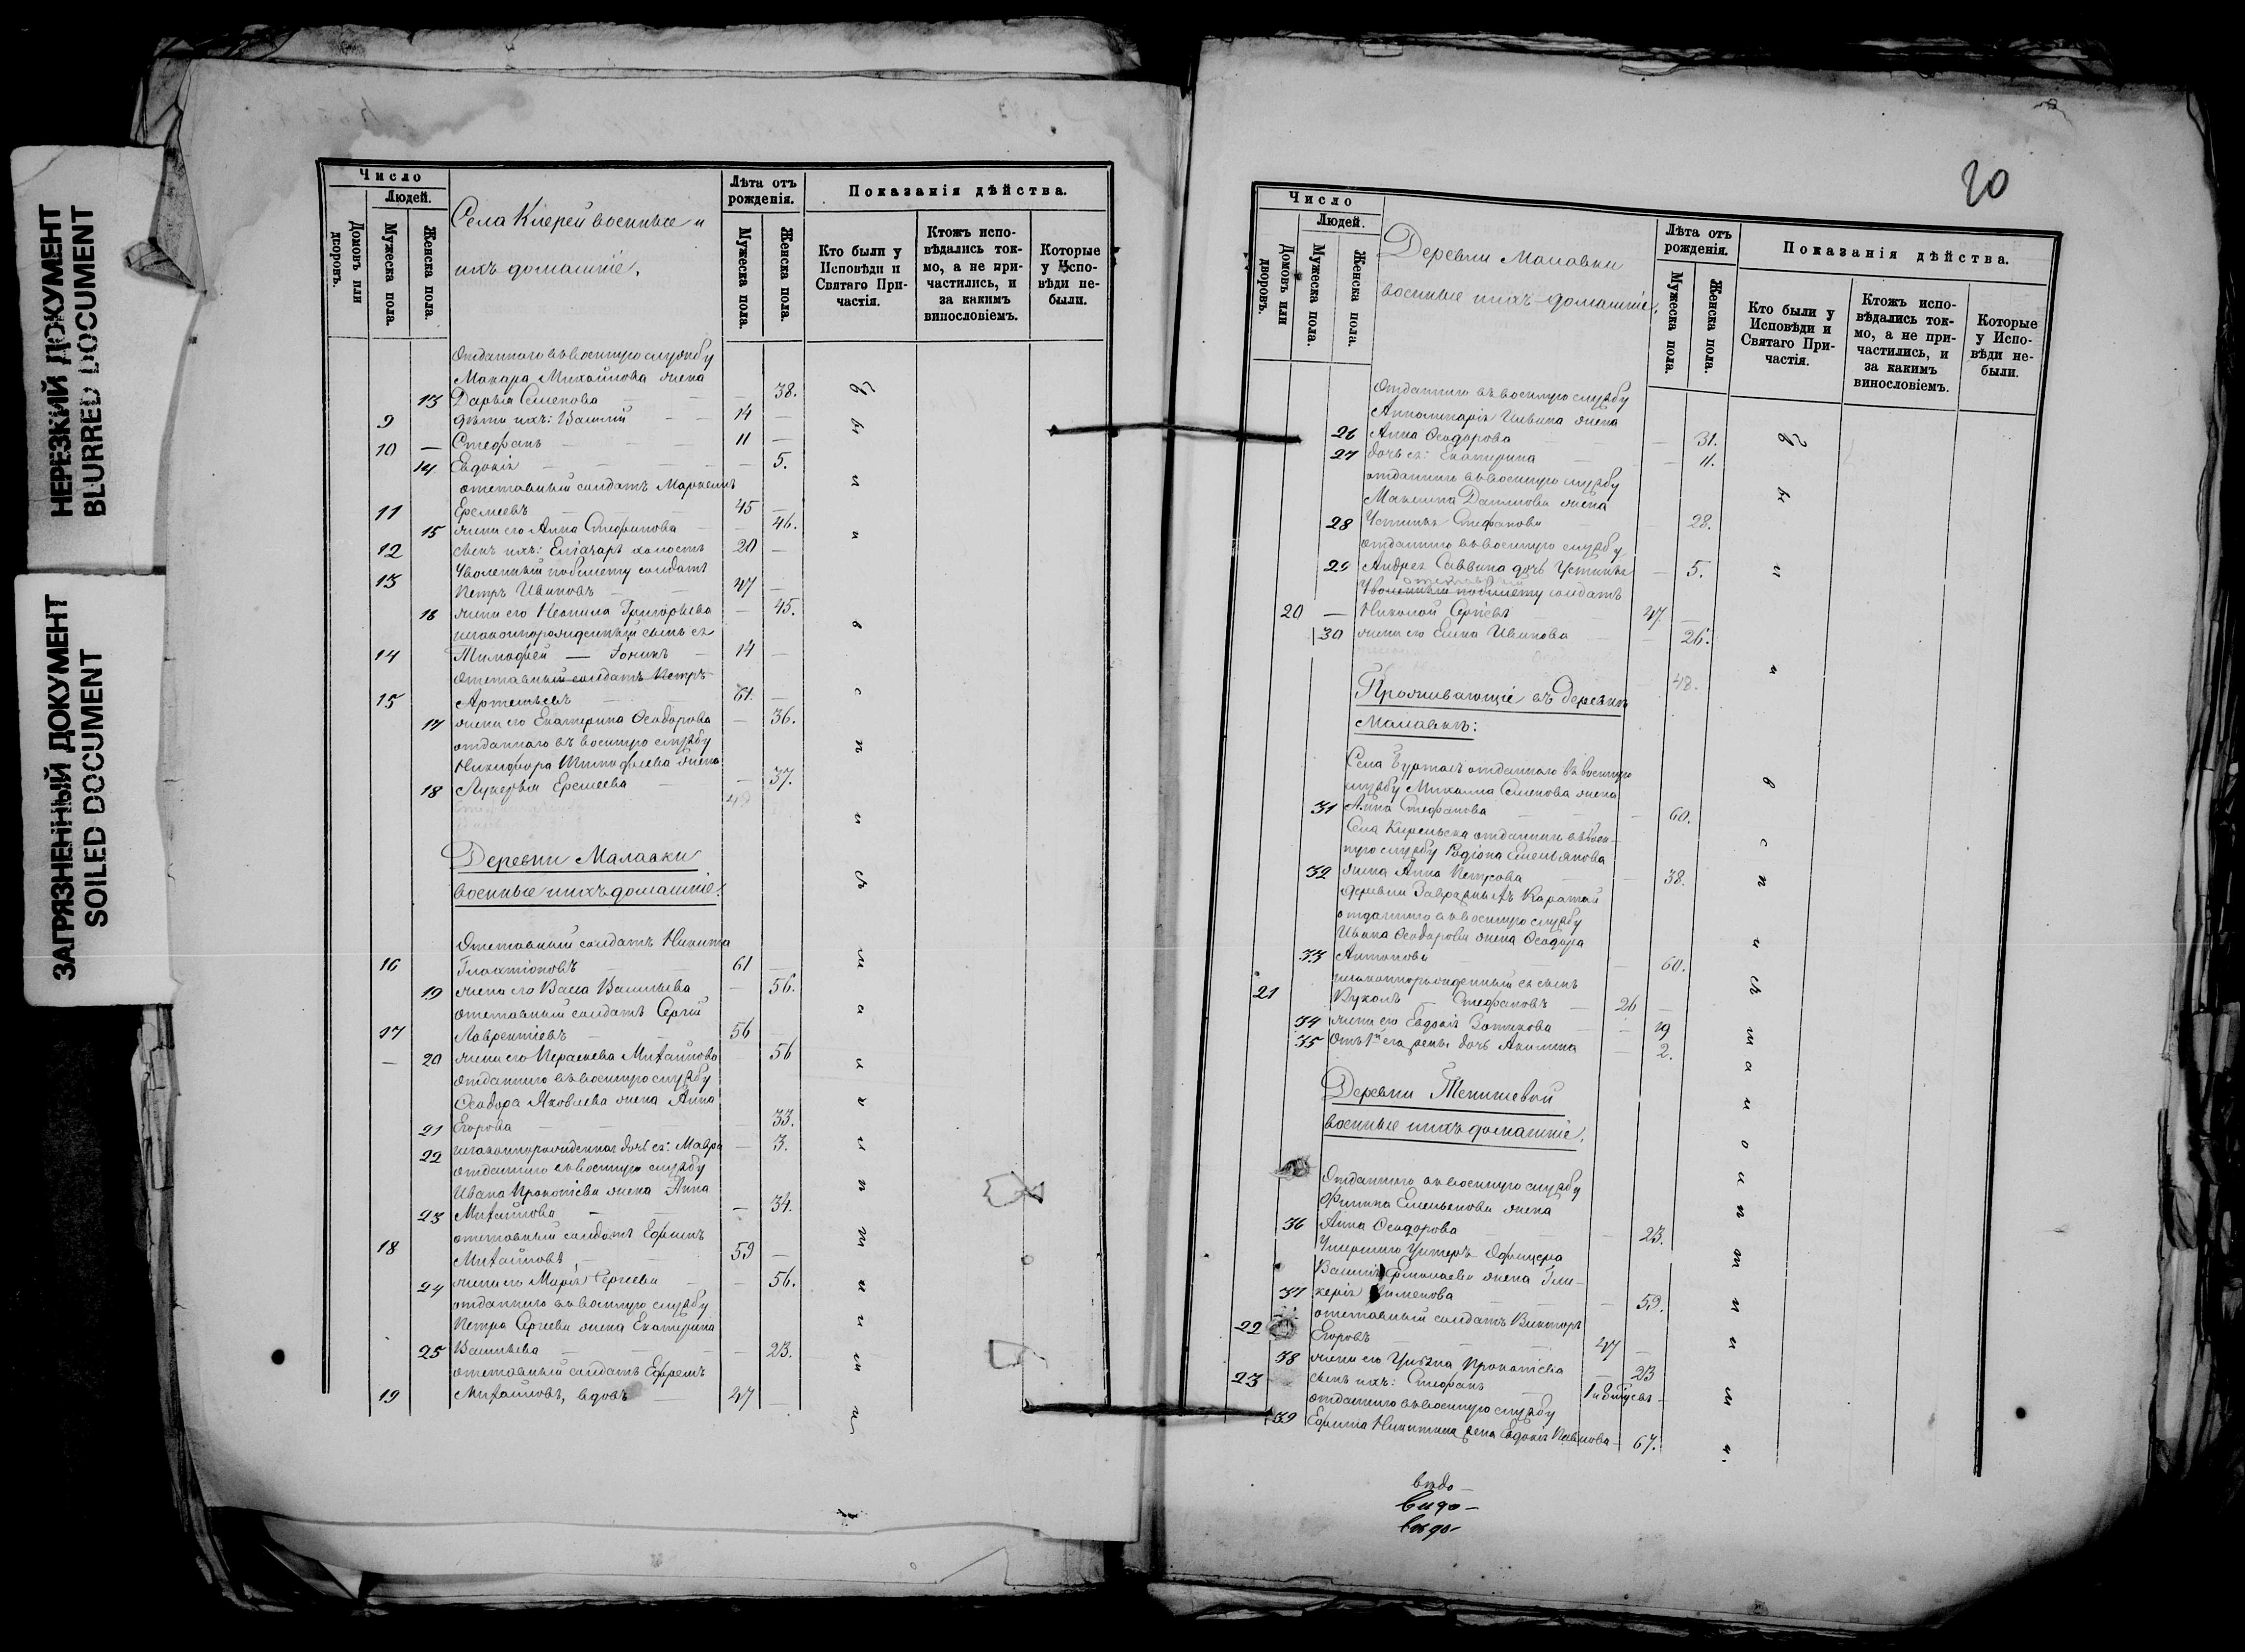 НЕРЕЗКИЙ ДОКУМЕНТ
BLURRED DOCUMENT
ЗАГРЯЗНЕННЫЙ ДОКУМЕНТ
SOILED DOCUMENT
Число
Людей.
Домовъ или дворовъ.
Мужеска пола.
Женска пола.
Села Кіерей военные и
ихъ домашніе.
Лѣта отъ рожденія.
Мужеска пола.
Женска пола.
Показанія дѣйства.
Кто были у Исповѣди и Святаго Причастія.
Ктожъ исповѣдались токмо, а не причастились, и за какимъ винословіемъ.
Которые у Исповѣди небыли.
Отданнаго въ военную службу
Макара Михайлова жена
13 Дарья Семенова — 38.
9 дѣти ихъ: Василій — 14 —
10 — Стефанъ — 11 —
14 Евдокія — 5.
отставный солдатъ Маркеллъ
11 Еремеевъ — 45 —
15 жена его Анна Стефанова — 46.
12 сынъ ихъ: Елиазаръ холостъ 20 —
Уволенный по билету солдатъ
13 Петръ Ивановъ — 47 —
16 жена его Неонила Григорьева — 45.
незаконнорожденный сынъ ея
14 Тимофей — Іонинъ — 14 —
Отставный солдатъ Петръ
15 Артемьевъ 61. —
17 жена его Екатерина Ѳеодорова — 36.
отданнаго въ военную службу
Никифора Тимофеева жена
18 Лукерья Еремеева — 37.
48
Деревни Малавки
военные и ихъ домашніе.
Отставный солдатъ Никита
16 Галактіоновъ — 61 —
19 жена его Васса Васильева — 56.
отставный солдатъ Сергій
17 Лаврентіевъ — 56 —
— 20 жена его Параскева Михайлова 56
Отданнаго въ военную службу
Ѳеодора Яковлева жена Анна
21 Егорова — 33.
22 незаконнорожденная дочь ея: Мавра — 3.
отданнаго въ военную службу
Ивана Прокопіева жена Анна
23 Михайлова — 34.
отставный солдатъ Ефимъ
18 Михайловъ 59 —
24 жена его Марія Сергеева — 56.
отданнаго въ военную службу
Петра Сергеева жена Екатерина
25 Васильева — 23.
отставный солдатъ Ефремъ
19 Михайловъ, вдовъ — 47 —
20
Число
Людей.
Домовъ или дворовъ.
Мужеска пола.
Женска пола.
Деревни Малавки
военные и ихъ домашніе.
Лѣта отъ рожденія.
Мужеска пола.
Женска пола.
Показанія дѣйства.
Кто были у Исповѣди и Святаго Причастія.
Ктожъ исповѣдались токмо, а не причастились, и за какимъ винословіемъ.
Которые у Исповѣди небыли.
Отданнаго въ военную службу
Апполинарія Ивина жена
26 Анна Ѳеодорова — 31.
27 дочь ея: Екатерина — 11.
отданнаго въ военную службу
Максима Данилова жена
28 Устинья Стефанова — 28.
отданнаго въ военную службу
29 Андрея Саввина дочь Устинья — 5.
отставный
Уволенный по билету солдатъ
20 — Николай Сергѣевъ 47 —
30 жена его Елена Иванова — 26.
48.
Проживающіе въ деревнѣ
Малавкѣ:
Села Буртасъ отданнаго въ военную
службу Михаила Семенова жена
31 Анна Стефанова — 60.
Села Кирельска отданнаго въ воен-
ную службу Родіона Емельянова
32 жена Анна Петрова — 38.
деревни Заовражныхъ Каратай
отданнаго въ военную службу
Ивана Ѳеодорова жена Ѳеодора
33 Антонова — 60.
незаконнорожденный ея сынъ
21 Стефановъ — 26 —
34 жена его Евдокія — 19
35 Отъ 1й его жены дочь Акилина — 2.
Деревни Тенишевой
военные и ихъ домашніе.
Отданнаго въ военную службу
Филиппа Емельянова жена
36 Анна Ѳеодорова — 23.
Умершаго Унтеръ Офицера
Василія Ермолаева жена Гли-
37 керія — 59.
отставный солдатъ Викторъ
22 Егоровъ — 47 —
38 жена его Ульяна Прокопіева — 23
23 сынъ ихъ: Стефанъ
отданнаго въ военную службу
39 Ефима Никитина жена Евдокія 67.
видо —
видо —
видо —